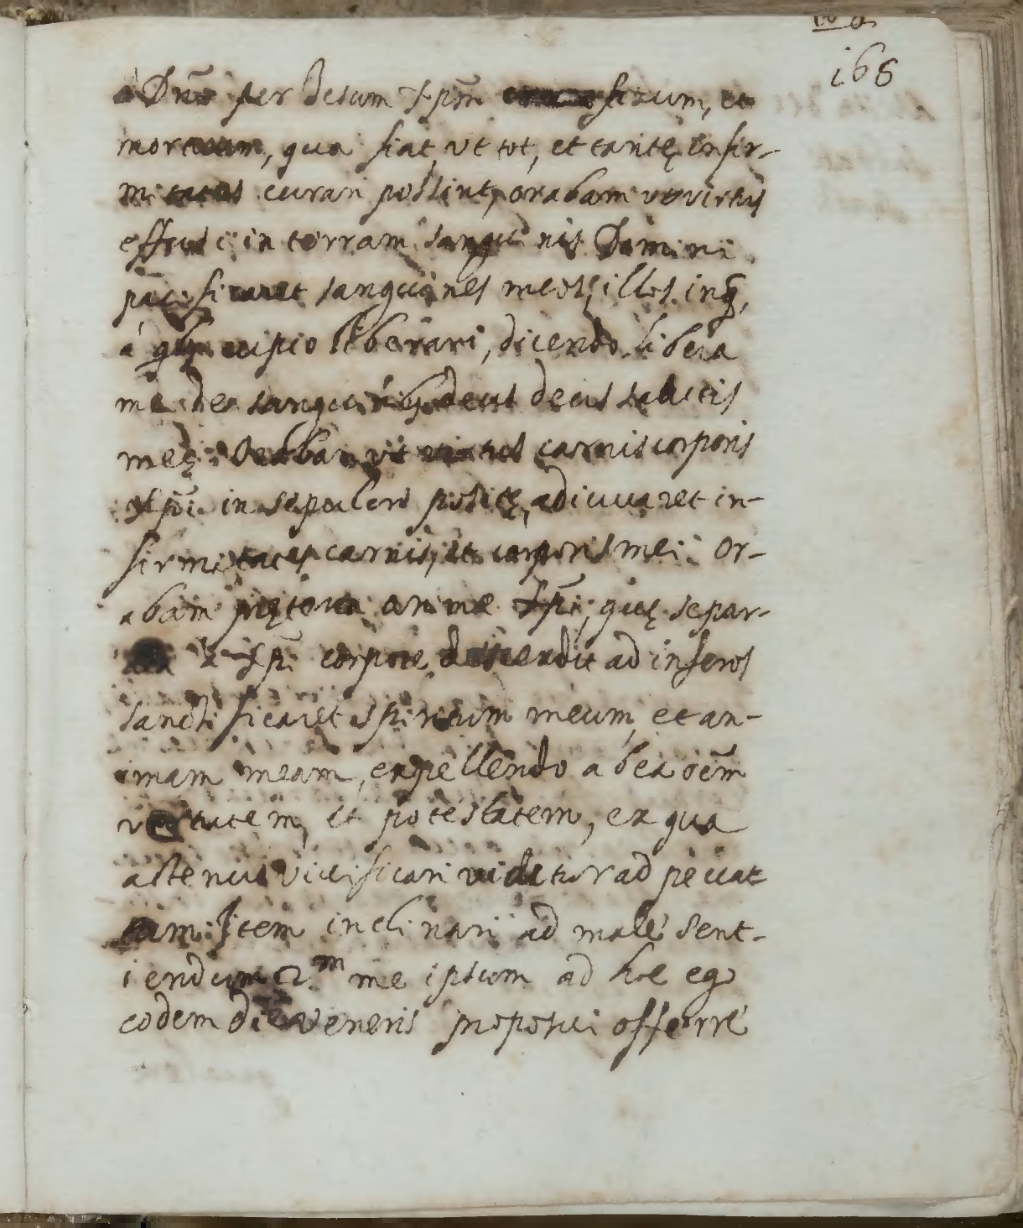 168
à Dnō per Jesum Xpm̄ crucifixum, et
mortuum, qua fiat, vt tot, et tantę infir-
mitates curari possint, orabam vt virtus
effusi in terram sanguinis Domini
pacificaret sanguines meos, illos inq̄,
à quibus cupio liberari, dicendo libera
me de sanguinibus deus deus salutis
meę: Orabam vt virtus carnis corporis
Xpi in sepulcro positę, adiuuaret in-
firmitates carnis, et corporis mei: Or-
abam pręterea animę Xpi, quę separ-
à Xpi corpore descendit ad inferos
sanctificaret spiritum meum, et an-
imam meam, expellendo ab ea oēm
virtutem, et potestatem, ex qua
actenus viuificari videtur ad peccat
um: Item inclinari ad malè sent-
iendum me ipsum ad hoc ego
eodem die Veneris proposui offerre